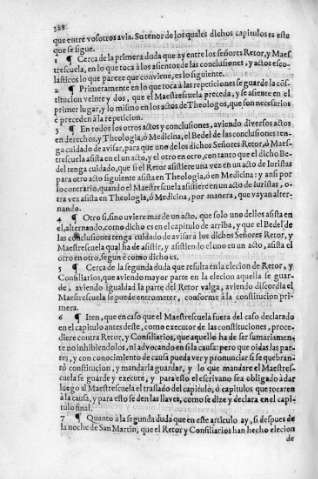 que entre vosotros avia. Su tenor de los quales dichos capitulos es este
que se sigue.
1 ¶ Cerca de la primera duda que ay entre los señores Retor, y Maes
trescuela, en lo que toca à los asientos de las conclusiones, y actos esco-
lasticos lo que parece que conviene, es lo siguiente.
2 ¶ Primeramente en lo que toca a las repeticiones se guarde la cõs-
titucion veinte y dos, que el Maestrescuela preceda, y se asiente en el
primer lugar, y lo mismo en los actos de Theologos, que son necessarios
e preceden à la repeticion.
3 ¶ En todos los otros actos y conclusiones, aviendo diversos actos
en derechos, y Theologia, ò Medicina, el Bedel de las conclusiones ten-
ga cuidado de avisar, para que uno de los dichos Señores Retor, ò Maes-
trescuela asista en el un acto, y el otro en otro, con tanto que el dicho Be-
del tenga cuidado, que si el Retor asistiere una vez en un acto de Iuristas
para otro acto siguiente asista en Theologia, ò en Medicina: y ansi por
lo contrario, quando el Maestrescuela asistiere en un acto de Iuristas, o
tra vez asista en Theologia, ò Medicina, por manera, que vayan alter-
nando.
4 ¶ Otro si, sino uviere mas de un acto, que solo uno dellos asista en
el, alternando, como dicho es en el capitulo de arriba, y que el Bedel de
las conclusiones tenga cuidado de avisar à los dichos Señores Retor, y
Maestrescuela qual ha de asistir, y asistiendo el uno en un acto, asista el
otro en otro, segun e como dicho es.
5 ¶ Cerca de la segunda duda que resulta en la elecion de Retor, y
Consiliarios, que aviendo mayor parte en la elecion aquella se guar-
de, aviendo igualdad la parte del Retor valga, aviendo discordia el
Maestrescuela se puede entrometer, conforme à la constitucion pri-
mera.
6 ¶ Iten, que en caso que el Maestrescuela fuera del caso declarado
en el capitulo antes deste, como executor de las constituciones, proce-
diere contra Retor, y Consiliarios, que aquello ha de ser sumariamen-
te no inhibiendolos, ni advocando en si la causa: pero que oidas las par-
tes, y con conocimiento de causa pueda ver y pronunciar si se quebran-
tò constitucion, y mandarla guardar, y lo que mandare el Maestres-
cuela se guarde y execute, y para esto el escrivano sea obligado à dar
luego al Maestrescuela el traslado del capitulo, ò capitulos que tocaren
à la causa, y para esto se den las llaves, como se dize y declara en el capi-
tulo final.
7 ¶ Quanto à la segunda duda que en este articulo ay, si despues de
la noche de San Martin, que el Retor y Consiliarios han hecho elecion
de